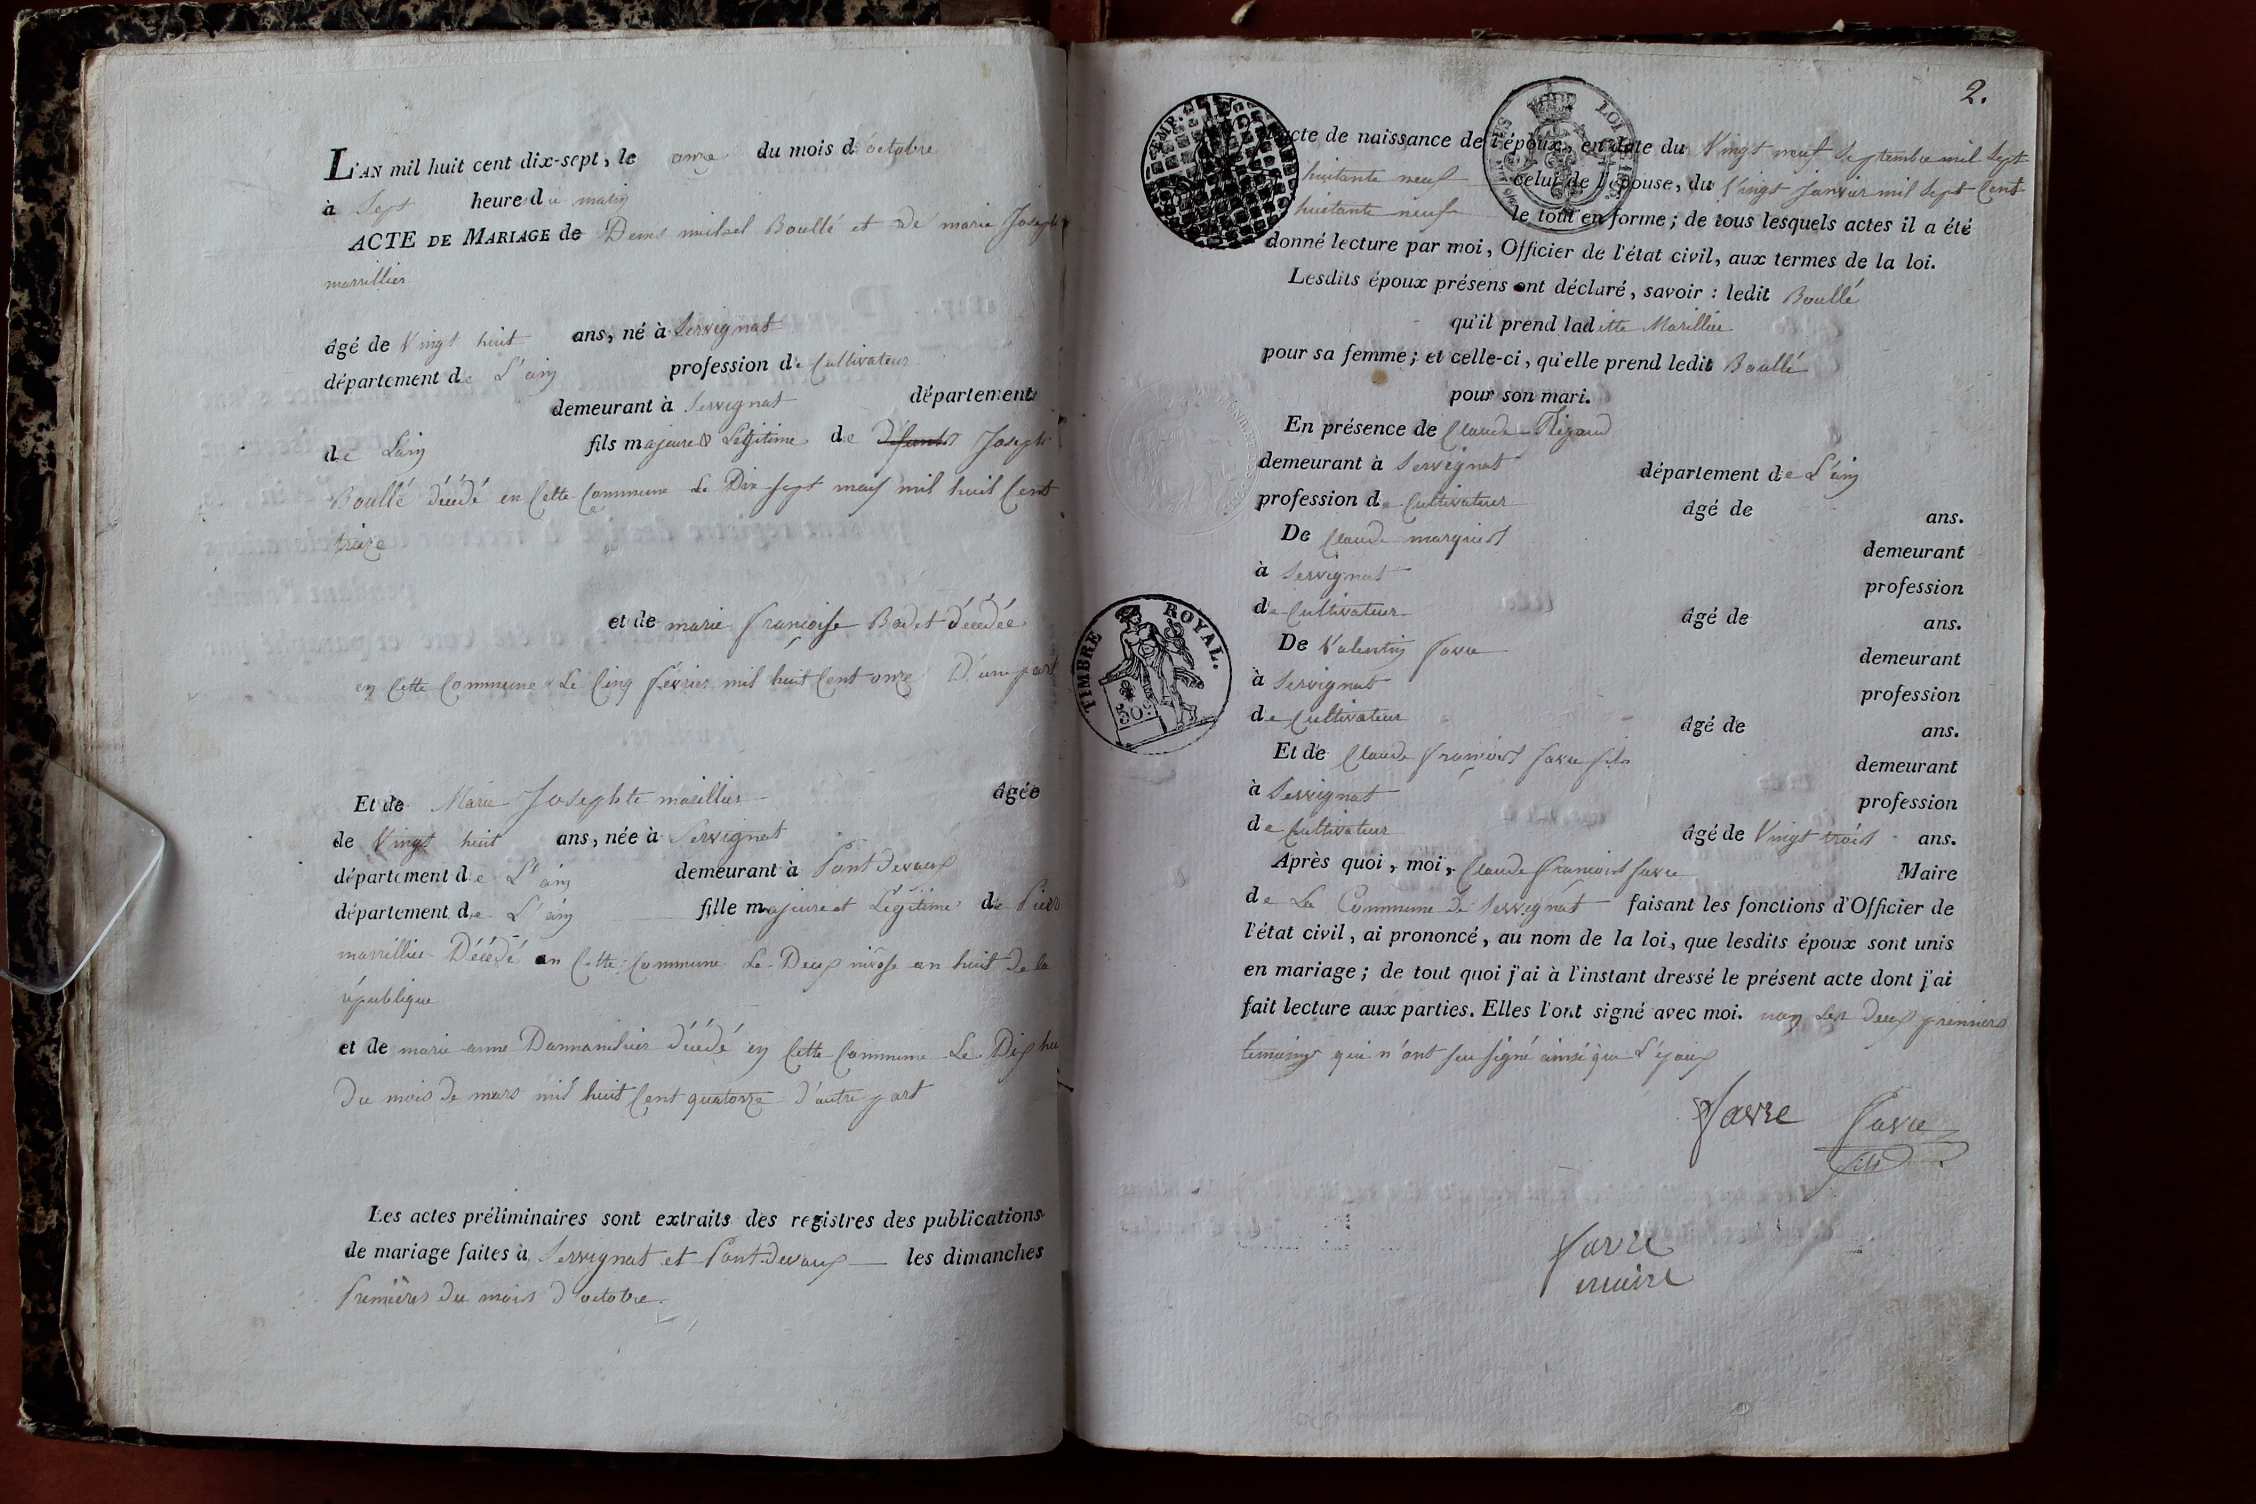 L'AN mil huit cent dix-sept, le onze du mois d'octobre
à Sept heure du matin
ACTE DE MARIAGE de Denis michel Boullé et de marie Joseph
marrillier
âgé de Vingt huit ans, né à Servignat
département de L'ain profession de Cultivateur
demeurant à Servignat département
de Lain fils majeure & Legitime de défunt Joseph
Boullé décédé en Cette Commune Le Dix sept mars mil huit Cent
treize
et de marie françoise Bodet décédée
en Cette Commune Le Cinq février mil huit Cent onze D'une part
Et de Marie Josephte marillier âgée
de Vingt huit ans, née à Servignat
département de L'ain demeurant à Pontdevaux
département de L'ain fille majeure et Légitime de Pierre
marrillier Décédé en Cette Commune Le Deux nivose an huit de la
république
et de marie anne décédé en Cette Commune Le Dix hu
Du mois de mars mil huit Cent quatorze d'autre part
Les actes préliminaires sont extraits des registres des publications
de mariage faites à Servignat et Pontdevaux les dimanches
Premières du mois d'octobre
2.
TIMP.
LOI DE
acte de naissance de l'époux, en date du Vingt neuf Septembre mil Sept
huitante neuf celui de l'épouse, du Vingt Janvier mil Sept Cent
huitante neuf le tout en forme; de tous lesquels actes il a été
donné lecture par moi, Officier de l'état civil, aux termes de la loi.
Lesdits époux présens ont déclaré, savoir : ledit Boullé
qu'il prend laditte Marillier
pour sa femme; et celle-ci, qu'elle prend ledit Boullé
pour son mari.
En présence de Claude Rigaud
demeurant à Servignat département de L'ain
profession de Cultivateur âgé de ans.
De Claude marguist demeurant
à Servignat profession
de Cultivateur âgé de ans.
De Valentin favre demeurant
à Servignat profession
de Cultivateur âgé de ans.
Et de Claude françois favre fils demeurant
à Servignat profession
de Cultivateur âgé de Vingt trois ans.
Après quoi, moi, Claude françois favre Maire
de La Commune de Servignat faisant les fonctions d'Officier de
l'état civil, ai prononcé, au nom de la loi, que lesdits époux sont unis
en mariage; de tout quoi j'ai à l'instant dressé le présent acte dont j'ai
fait lecture aux parties. Elles l'ont signé avec moi. non Les deux premiers
temoins qui n'ont seu signé ainsi que L'epoux
TIMBRE ROYAL.
50c
favre favre
fils
favre
maire